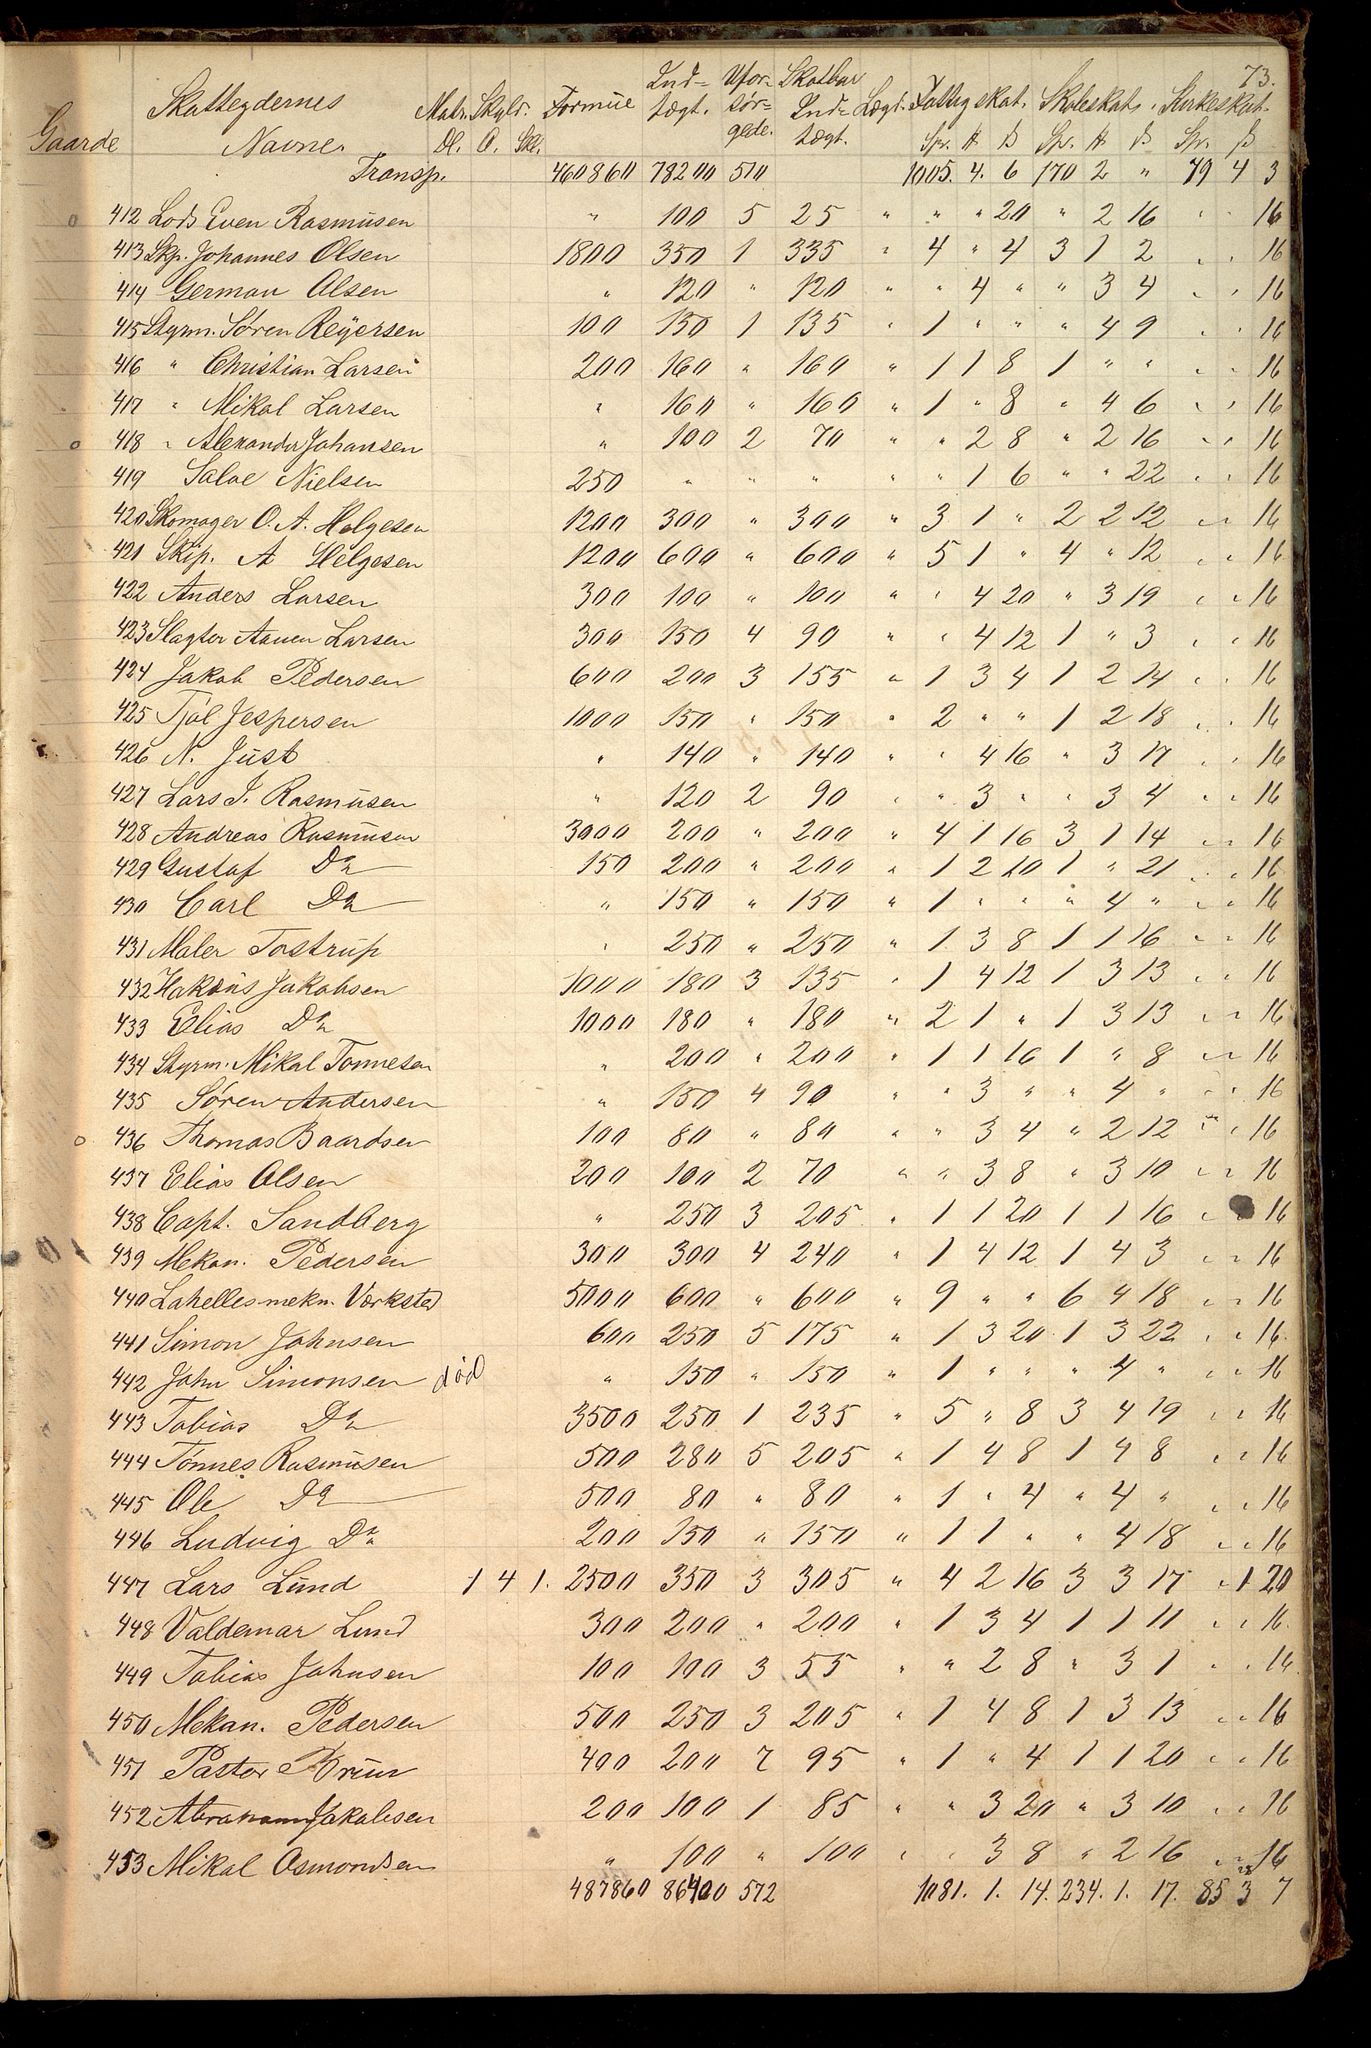 73.
Gaarde Skatteydernes Navne. Matr. Skyld. Dl. O. Skl. Formue Ind-tægt. Ufor-sør-gede. Skatbar Ind-tægt. Lægd. Fattigskat. Spr. # ß Skoleskat. Spr. # ß Kirkeskat. Spr. ß
Transp. 460860 78200 510 1005. 4. 6 170 2 " 79 4 3
o 412 Lods Even Rasmusen " 100 5 25 " " " 20 " 2 16 " " 16
413 Skp. Johannes Olsen 1800 350 1 335 " 4 " 4 3 1 2 " " 16
414 German Olsen " 120 " 120 " " 4 " " 3 4 " " 16
415 Styrm. Søren Reyersen 100 150 1 135 " 1 " " " 4 9 " " 16
416 " Christian Larsen 200 160 " 160 " 1 1 8 1 " " " " 16
417 " Mikal Larsen " 160 " 160 " 1 " 8 " 4 6 " " 16
o 418 " Alexander Johansen " 100 2 70 " " 2 8 " 2 16 " " 16
419 Salve Nielsen 250 " " " " " 1 6 " " 22 " " 16
420 Skomager O. A. Helgesen 1200 300 " 300 " 3 1 " 2 2 12 " " 16
421 Skip. A Helgesen 1200 600 " 600 " 5 1 " 4 " 12 " " 16
422 Anders Larsen 300 100 " 100 " " 4 20 " 3 19 " " 16
423 Slagter Aanen Larsen 300 150 4 90 " " 4 12 1 " 3 " " 16
424 Jakob Pedersen 600 200 3 155 " 1 3 4 1 2 14 " " 16
425 Tjøl Jespersen 1000 150 " 150 " 2 " " 1 2 18 " " 16
426 N. Just " 140 " 140 " " 4 16 " 3 17 " " 16
427 Lars J. Rasmusen " 120 2 90 " " 3 " " 3 4 " " 16
428 Andreas Rasmusen 3000 200 " 200 " 4 1 16 3 1 14 " " 16
429 Gustaf Do 150 200 " 200 " 1 2 20 1 " 21 " " 16
430 Carl Do " 150 " 150 " 1 " " " 4 " " " 16
431 Maler Tostrup " 250 " 250 " 1 3 8 1 1 16 " " 16
432 Hakøns Jakobsen 1000 180 3 135 " 1 4 12 1 3 13 " " 16
433 Elias Do 1000 180 " 180 " 2 1 " 1 3 13 " " 16
434 Styrm. Mikal Tonnesen " 200 " 200 " 1 1 16 1 " 8 " " 16
435 Søren Andersen " 150 4 90 " " 3 " " 4 " " " 16
o 436 Thomas Baardsen 100 80 " 80 " " 3 4 " 2 12 " " 16
437 Elias Olsen 200 100 2 70 " " 3 8 " 3 10 " " 16
438 Capt. Sandberg " 250 3 205 " 1 1 20 1 1 16 " " 16
439 Mekan. Pedersen 300 300 4 240 " 1 4 12 1 4 3 " " 16
440 Lahelles mekn. Værksted 5000 600 " 600 " 9 " " 6 4 18 " " 16
441 Simon Johnsen 600 250 5 175 " 1 3 20 1 3 22 " " 16
442 John Simonsen død " 150 " 150 " 1 " " " 4 " " " 16
443 Tobias Do 3500 250 1 235 " 5 " 8 3 4 19 " " 16
444 Tønnes Rasmusen 500 280 5 205 " 1 4 8 1 4 8 " " 16
445 Ole Do 500 80 " 80 " 1 " 4 " 4 " " " 16
446 Ludvig Do 200 150 " 150 " 1 1 " " 4 18 " " 16
447 Lars Lund 1 4 1. 2500 350 3 305 " 4 2 16 3 3 17 " 1 20
448 Valdemar Lund 300 200 " 200 " 1 3 4 1 1 11 " " 16
449 Tobias Johnsen 100 100 3 55 " " 2 8 " 3 1 " " 16
450 Mekan. Pedersen 500 250 3 205 " 1 4 8 1 3 13 " " 16
451 Pastor Bruun 400 200 7 95 " 1 " 4 1 1 20 " " 16
452 Abraham Jakobsen 200 100 1 85 " " 3 20 " 3 10 " " 16
453 Mikal Osmondsen " 100 " 100 " " 3 8 " 2 16 " " 16
487860 86400 572 1081. 1. 14. 234. 1. 17. 85 3 7